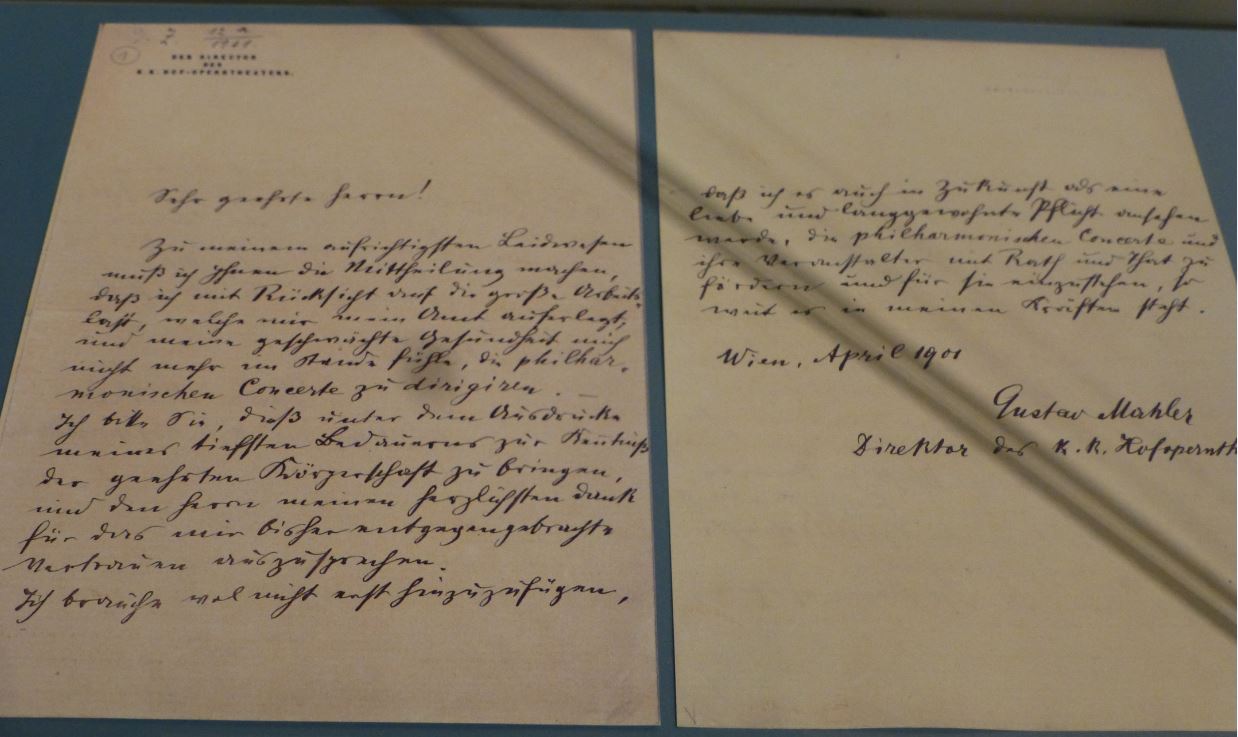 1
12 A
1901
DER DIRECTOR
DES
K. K. HOF-OPERNTHEATERS.
Sehr geehrte Herrn!
Zu meinem aufrichtigsten Leidwesen
muß ich Ihnen die Mittheilung machen,
daß ich mit Rücksicht auf die große Arbeits
last, welche mir mein Amt auferlegt,
und meine geschwächte Gesundheit mich
nicht mehr im Stande fühle, die philhar-
monischen Concerte zu dirigiren. —
Ich bitte Sie, dieß unter dem Ausdrucke
meines tiefsten Bedauerns zur Kentniß
der geehrten Körperschaft zu bringen,
und den Herrn meinen herzlichsten Dank
für das mir bisher entgegengebrachte
Vertrauen auszusprechen.
Ich brauche wol nicht erst hinzuzufügen,
daß ich es auch in Zukunft als eine
liebe und langgewohnte Pflicht ansehen
werde, die philharmonischen Concerte und
ihre Veranstalter mit Rath und That zu
fördern und für sie einzustehen, so
weit es in meinen Kräften steht.
Wien, April 1901
Gustav Mahler
Direktor des K. K. Hofopernth